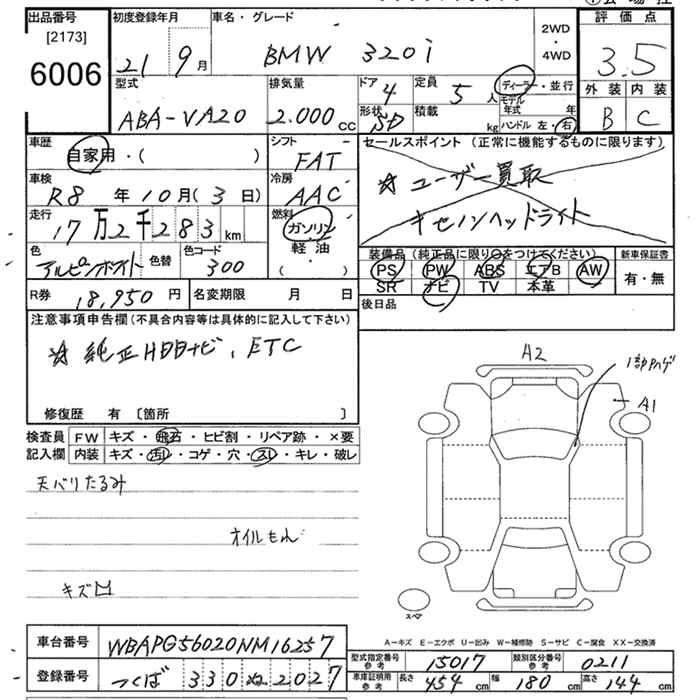 出品番号 初度登録年月 車名・グレード 評価点
[2173] 2WD・4WD
6006 21年9月 BMW 320i 3.5
外装 内装
型式 排気量 ドア 定員 ディーラー・並行 B C
ABA-VA20 2.000cc 4 5人 モデル年式 年
形状 積載 kg ハンドル 左・右
5D
車歴 シフト セールスポイント(正常に機能するものに限ります)
自家用・( ) FAT
☆ユーザー買取
車検 冷房
R8年10月(3日) AAC キセノンヘッドライト
走行 燃料
17万2千283km ガソリン
軽油
( )
色 色替 色コード 装備品(純正品に限り○をつけてください) 新車保証書
アルピンホワイト 300 PS PW ABS エアB AW 有・無
R券 18,950円 名変期限 月 日 SR ナビ TV 本革
後日品
注意事項申告欄(不具合内容等は具体的に記入して下さい)
☆純正HDDナビ、ETC
修復歴 有 〔箇所 〕
A2 1部ハゲ
A1
検査員 FW キズ・飛石・ヒビ割・リペア跡・×要
記入欄 内装 キズ・汚れ・コゲ・穴・スレ・キレ・破レ
天バリたるみ
オイルもれ
キズ凹
スペア
A-キズ E-エクボ U-凹み W-補修跡 S-サビ C-腐食 XX-交換済
車台番号 WBAPG56020NM16257
型式指定番号 参考 15017 類別区分番号 参考 0211
登録番号 つくば 330 ぬ 2027
車庫証明用 参考 長さ 454cm 幅 180cm 高さ 144cm